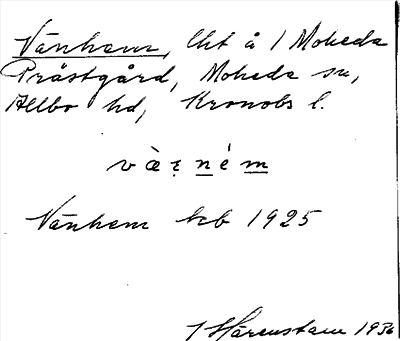 Vänhem, lht å 1 Moheda
Prästgård, Moheda sn,
Allbo hd, Kronobs l.
v à r n é m
Vänhem krb 1925
J Hårenstam 1936